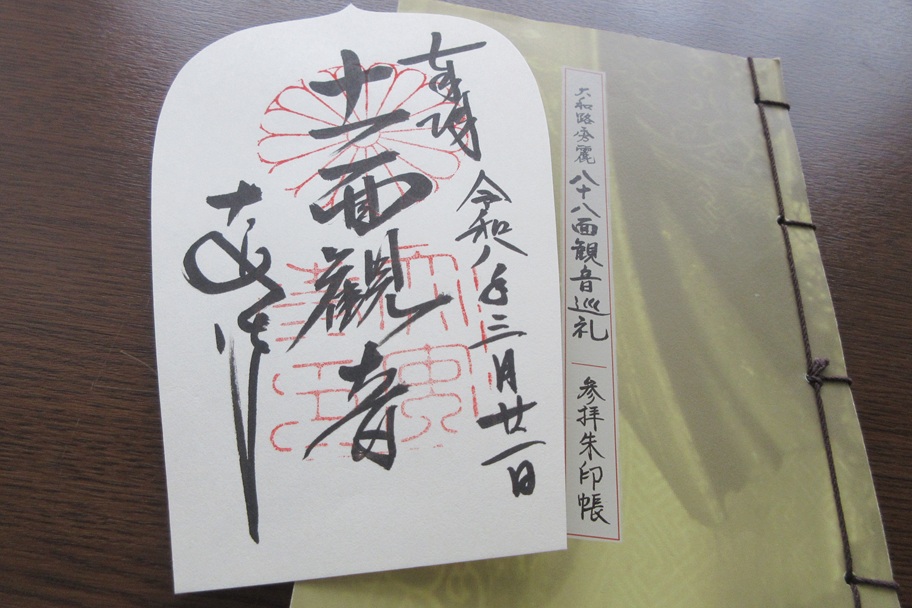 奉拝　令和八年三月廿一日
十一面觀音
大安寺
大和路秀麗　八十八面観音巡礼
参拝朱印帳